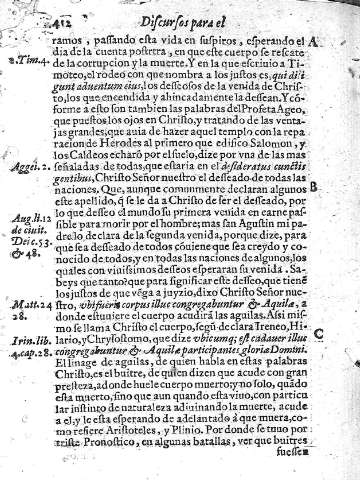 412 Discursos para el
ramos, passando esta vida en suspiros, esperando el A
dia de la cuenta postrera, en que este cuerpo se rescate
2. Tim. 4. de la corrupcion y la muerte. Y en la que escriuio a Ti-
moteo, el rodeo con que nombra a los justos es, qui dili-
gunt aduentum eius, los desseosos de la venida de Chris-
to, los que encendida y ahincadamente la dessean. Y cõ-
forme a esto son tambien las palabras del Profeta Ageo,
que puestos los ojos en Christo, y tratando de las venta-
jas grandes, que auia de hazer aquel templo con la repa
racion de Herodes al primero que edifico Salomon, y
los Caldeos echarõ por el suelo, dize por vna de las mas
Aggei. 2. señaladas de todas, que estaria en el desideratus cunctis
gentibus, Christo Señor nuestro el desseado de todas las
naciones. Que, aunque communmente declaran algunos B
este apellido, q̃ se le da a Christo de ser el desseado, por
lo que desseo el mundo su primera venida en carne pas-
Aug. li. 12 sible para morir por el hombre; mas san Agustin mi pa-
de ciuit. dre lo declara de la segunda venida, porque dize, para
Dei c. 53. que sea desseado de todos cõuiene que sea creydo y co-
& 48. nocido de todos, y en todas las naciones de algunos, los
quales con viuissimos desseos esperaran su venida. Sa-
beys que tanto? que para significar este desseo, que tienẽ
los justos de que vẽga a juyzio, dizo Christo Señor nue-
Matt. 24 stro, vbi fuerit corpus illuc congregabuntur & Aquilæ, a
28. donde estuuiere el cuerpo acudirã las aguilas. Assi mis-
mo se llama Christo el cuerpo, segũ declara Ireneo, Hi-
Irin. lib. lario, y Chrysostomo, que dize vbicumq; est cadauer illuc C
4. cap. 28. congregabuntur & Aquilæ participantes gloriæ Domini.
El linage de aguilas, de quien habla en estas palabras
Christo, es el buitre, de quien dizen que acude con gran
presteza, adonde huele cuerpo muerto; y no solo, quãdo
esta muerto, sino que aun quando esta viuo, con particu
lar instinto de naturaleza adiuinando la muerte, acude
a el, y le esta esperando de adelantado à que muera, co-
mo refiere Aristoteles, y Plinio. Por donde se tuuo por
triste Pronostico, en algunas batallas, ver que buitres
fuessen